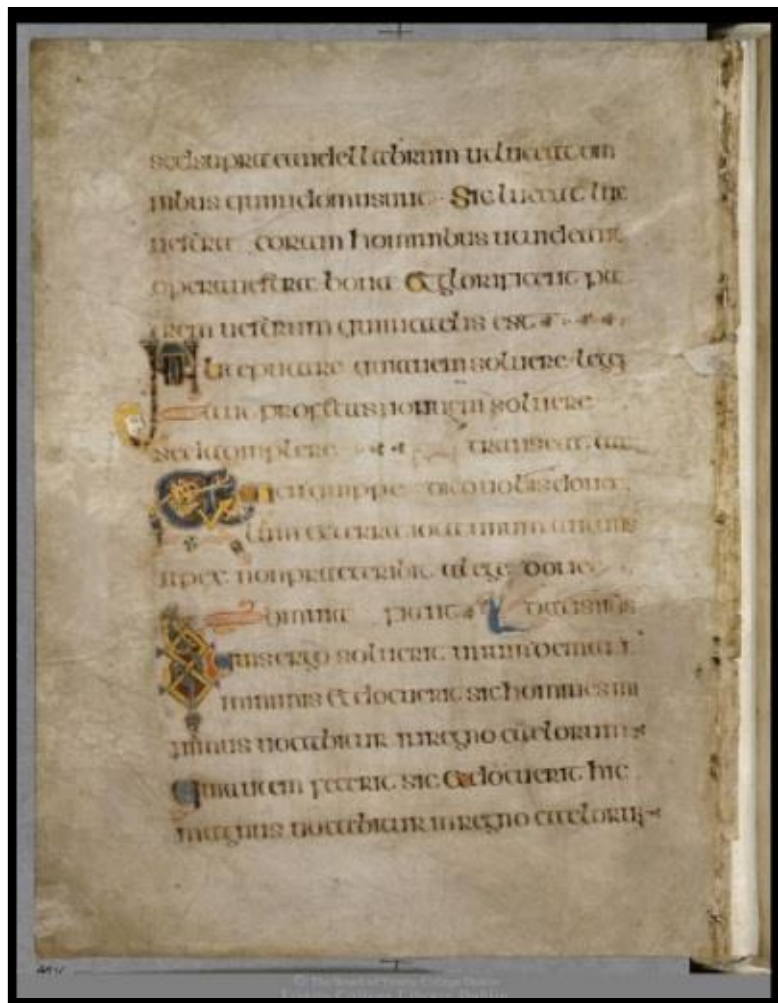 sed supra candellabrum ut luceat om
nibus qui in domu sunt Sic luceat lux
uestra coram hominibus ut uideant
opera uestra bona Et glorificent pa
trem uestrum qui in caelis est
putare quia ueni soluere lege
aut profetas non ueni soluere
sed adimplere transeat cae
quippe dico uobis donec
lum et terra iota unum aut unus
apex non praeteribit a lege donec
omnia fiant
Qui ergo soluerit unum de
minimis et docuerit sic homines mi
nimus uocabitur in regno caelorum
Qui autem fecerit sic et docuerit hic
magnus uocabitur in regno caeloru
© The Board of Trinity College Dublin
Trinity College Library Dublin